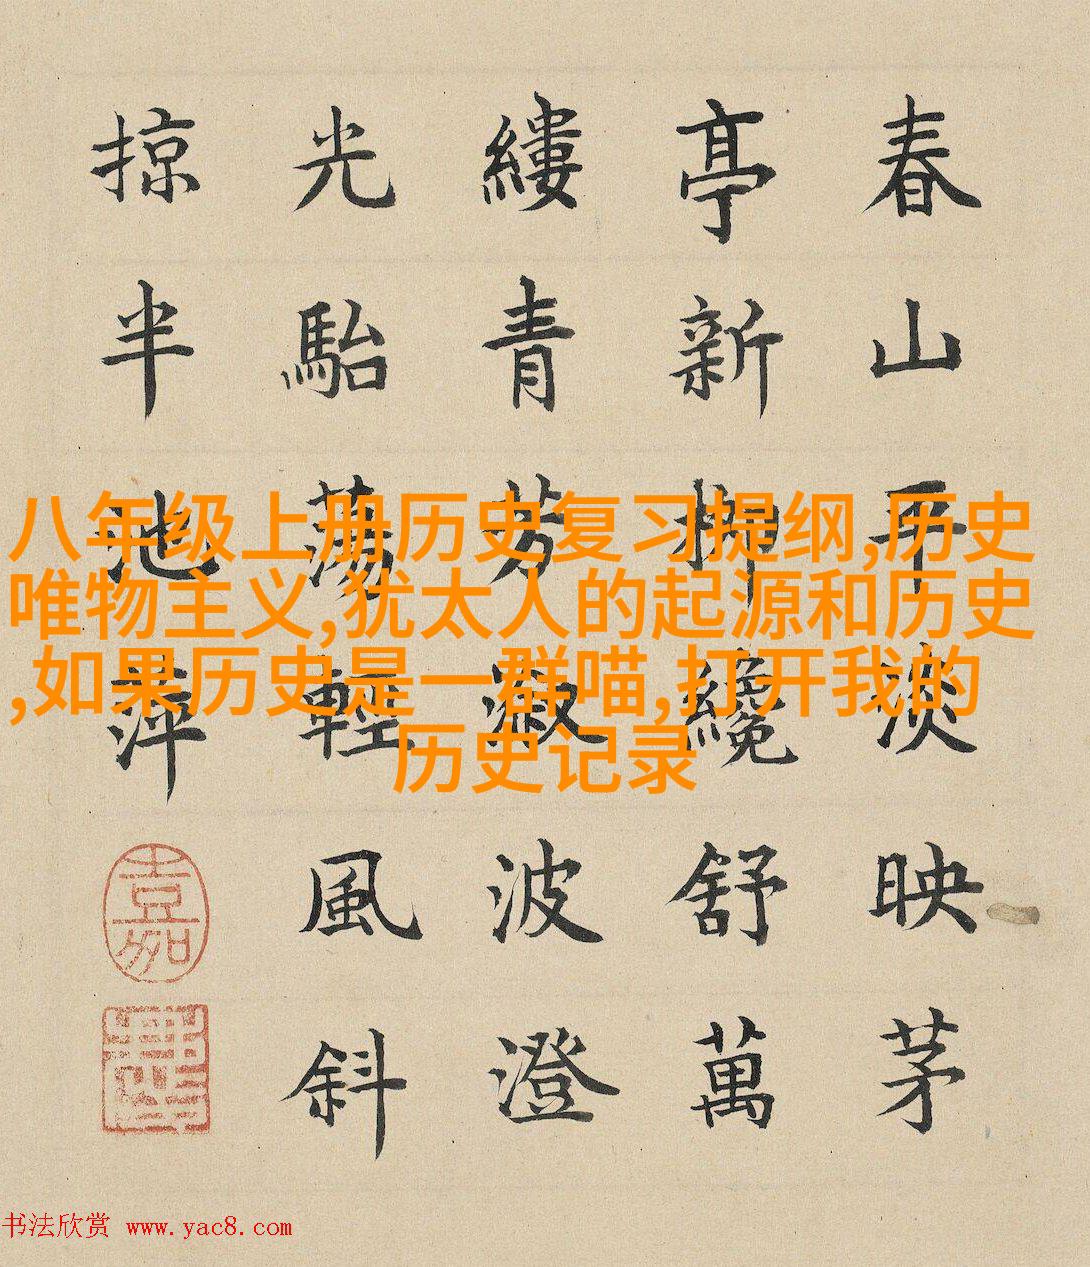 春山平淡映茅
亭新柳纔舒萬
縷青芳溆波澄
光駘蕩輕風斜
掠半池萍
嘉
八年级上册历史复习提纲,历史
唯物主义,犹太人的起源和历史
,如果历史是一群喵,打开我的
历史记录
书法欣赏 www.yac8.com